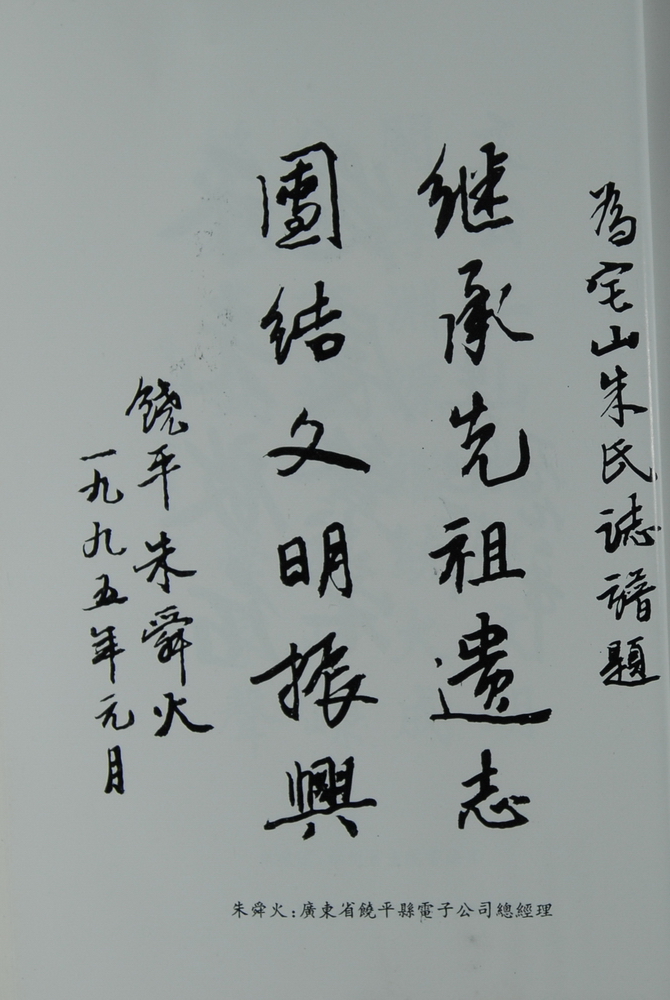 為宅山朱氏誌譜題
继承先祖遗志
團结文明振興
饒平朱舜火
一九九五年元月
朱舜火:廣東省饒平縣電子公司總經理